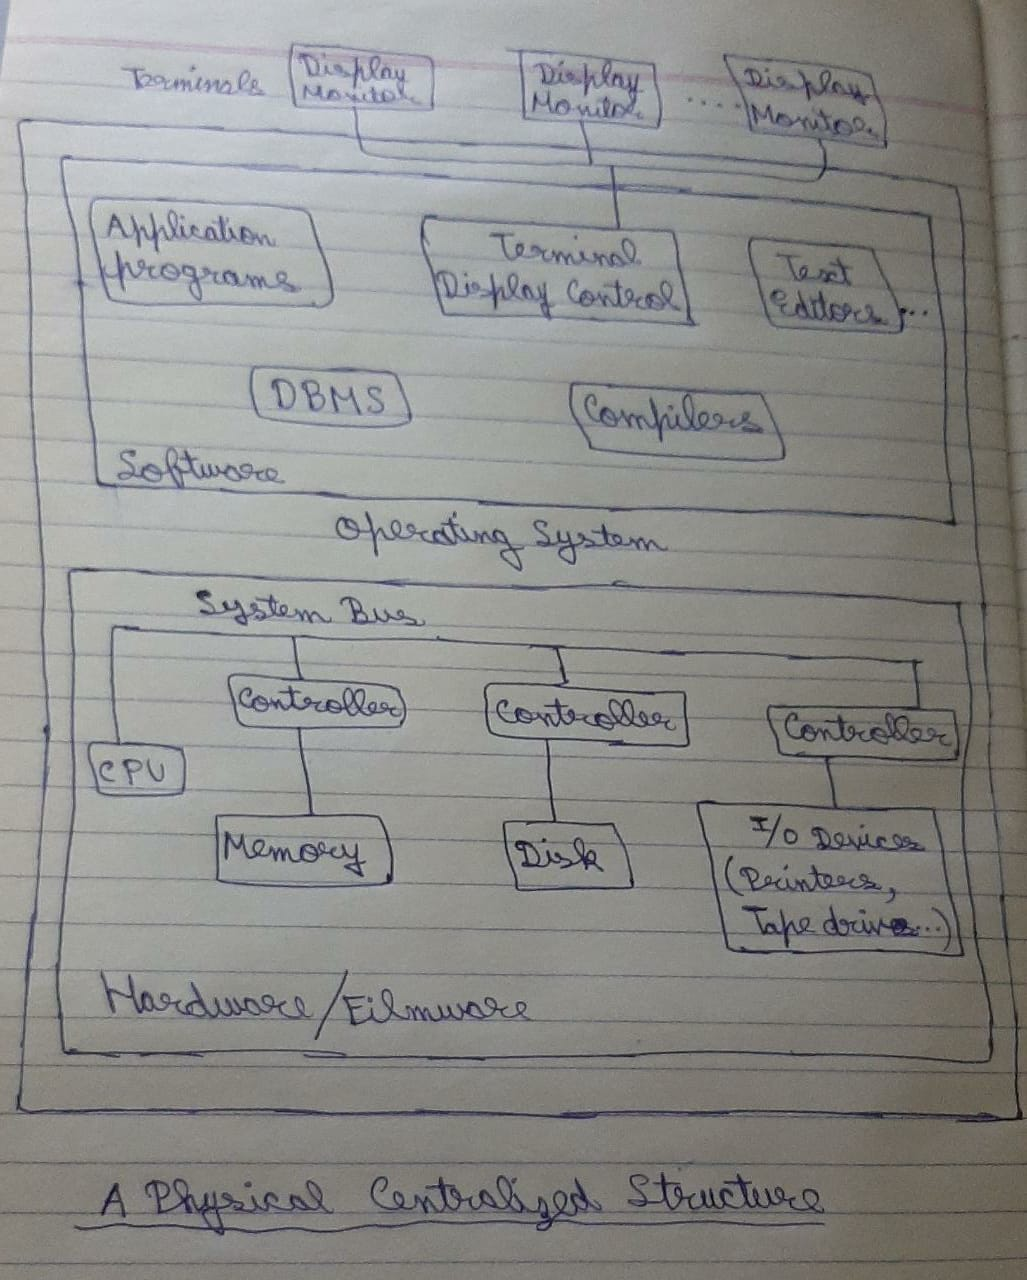 Terminals
Display
Monitor
Display
Monitor
....
Display
Monitor
Application
programs
Terminal
Display Control
Text
editors
...
DBMS
Compilers
Software
Operating System
System Bus
Controller
Controller
Controller
CPU
Memory
Disk
I/O Devices
(Printers,
Tape drives...)
Hardware/Filmware
A Physical Centralized Structure